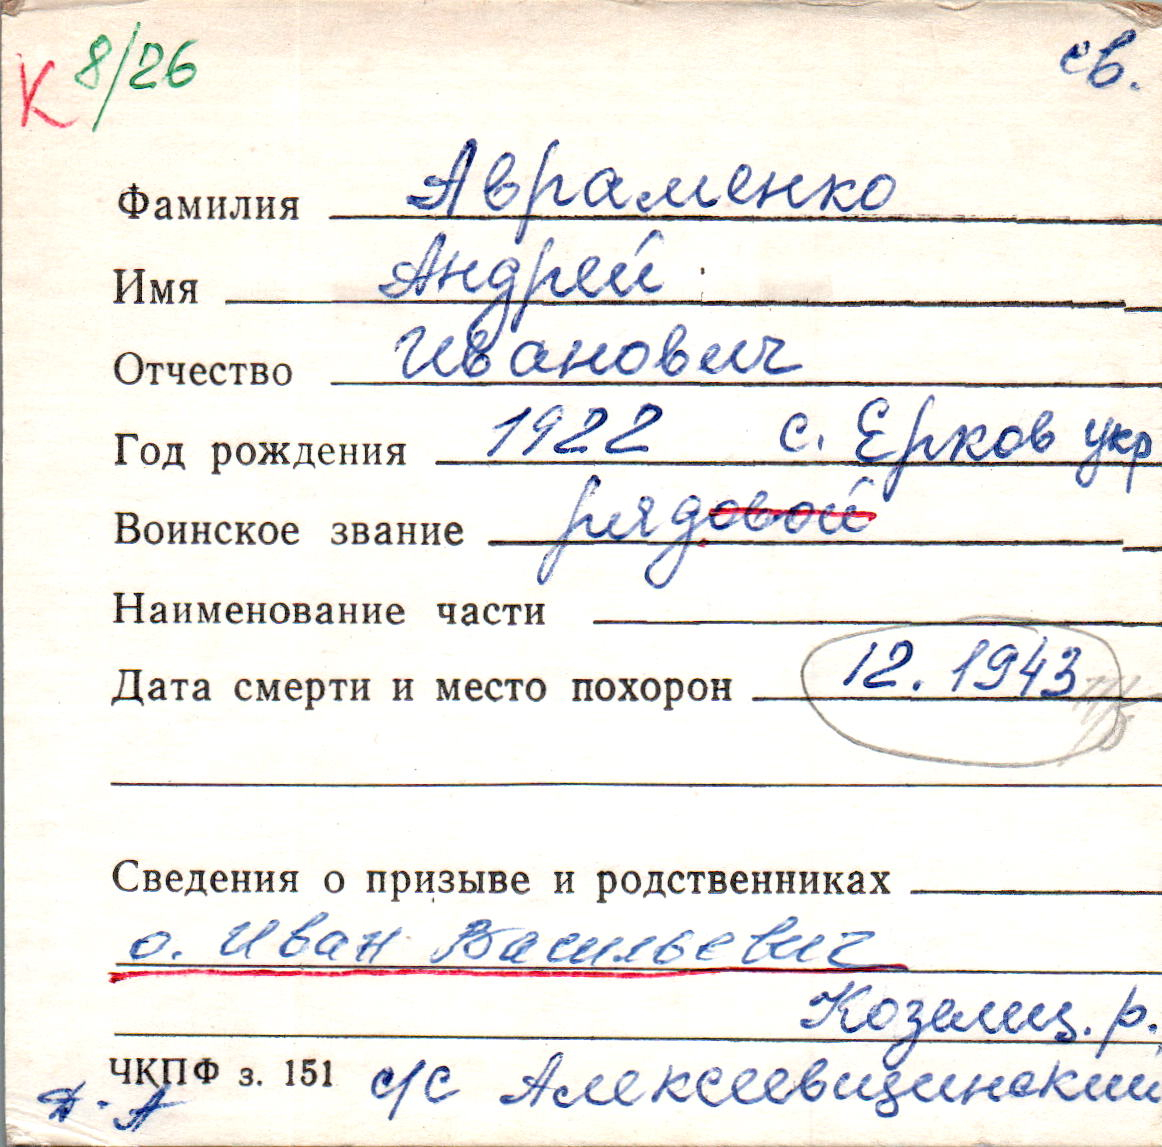 К 8/26 св.
Фамилия Авраменко
Имя Андрей
Отчество Иванович
Год рождения 1922 с. Ерков укр
Воинское звание рядовой
Наименование части
Дата смерти и место похорон 12.1943
Сведения о призыве и родственниках
о. Иван Васильевич
Козелец. р.
ЧКПФ з. 151 с/с Алексеевщинский
Д-А